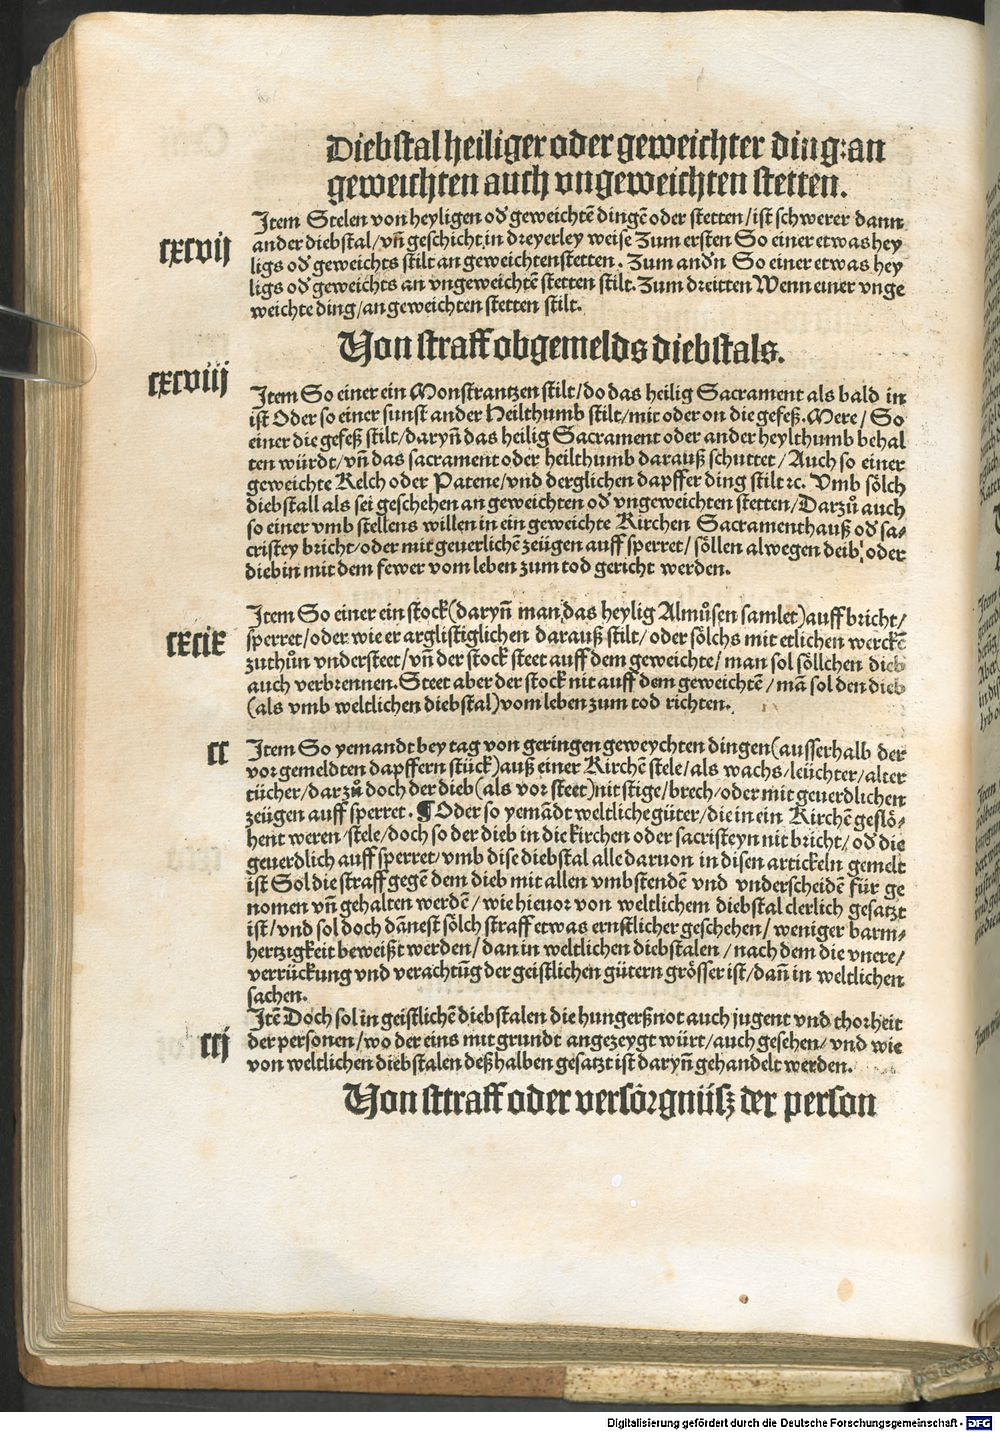 Diebstal heiliger oder geweichter ding: an
geweichten auch vngeweichten stetten.
cxcvij
Item Stelen von heyligen oď geweichtē dingē oder stetten / ist schwerer dann
ander diebstal / vñ geschicht in dreyerley weise Zum ersten So einer etwas hey
ligs oď geweichts stilt an geweichten stetten. Zum anďn So einer etwas hey
ligs oď geweichts an vngeweichtē stetten stilt. Zum dreitten Wenn einer vnge
weichte ding / an geweichten stetten stilt.
Von straff obgemelds diebstals.
cxcviij
Item So einer ein Monstrantzen stilt / do das heilig Sacrament als bald in
ist Oder so einer sunst ander Heilthumb stilt / mit oder on die gefeß. Mere / So
einer die gefeß stilt / daryñ das heilig Sacrament oder ander heylthumb behal
ten würdt / vñ das sacrament oder heilthumb darauß schuttet / Auch so einer
geweichte Kelch oder Patene / vnd derglichen dapffer ding stilt ꝛc. Vmb sölch
diebstall als sei geschehen an geweichten oď vngeweichten stetten / Darzů auch
so einer vmb stellens willen in ein geweichte Kirchen Sacramenthauß oď sa⸗
cristey bricht / oder mit geuerlichē zeügen auff sperret / söllen alwegen deib / oder
diebin mit dem fewer vom leben zum tod gericht werden.
cxcix
Item So einer ein stock (daryñ man das heylig Almůsen samlet) auff bricht /
sperret / oder wie er arglistiglichen darauß stilt / oder sölchs mit etlichen werckē
zuthůn vndersteet / vñ der stock steet auff dem geweichte / man sol söllchen dieb
auch verbrennen. Steet aber der stock nit auff dem geweichtē / mā sol den dieb
(als vmb weltlichen diebstal) vom leben zum tod richten.
cc
Item So yemandt bey tag von geringen geweychten dingen (ausserhalb der
vor gemeldten dapffern stück) auß einer Kirchē stele / als wachs / leüchter / alter
tücher / darzů doch der dieb (als vor steet) nit stige / brech / oder mit geuerdlichen
zeügen auff sperret. ¶ Oder so yemādt weltliche güter / die in ein Kirchē geflö⸗
hent weren / stele / doch so der dieb in die kirchen oder sacristeyn nit bricht / oď die
geuerdlich auff sperret / vmb dise diebstal alle daruon in disen artickeln gemelt
ist Sol die straff gegē dem dieb mit allen vmbstendē vnd vnderscheidē für ge
nomen vñ gehalten werdē / wie hieuor von weltlichem diebstal clerlich gesatzt
ist / vnd sol doch dānest sölch straff etwas ernstlicher geschehen / weniger barm⸗
hertzigkeit beweißt werden / dan in weltlichen diebstalen / nach dem die vnere /
verrückung vnd verachtūg der geistlichen gütern grösser ist / dañ in weltlichen
sachen.
ccj
Itē Doch sol in geistlichē diebstalen die hungerßnot auch jugent vnd thorheit
der personen / wo der eins mit grundt angezeygt würt / auch gesehen / vnd wie
von weltlichen diebstalen deßhalben gesatzt ist daryñ gehandelt werden.
Von sttraff oder versörgnüsz der person
Digitalisierung gefördert durch die Deutsche Forschungsgemeinschaft - DFG